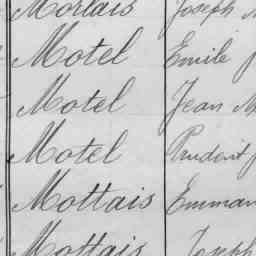 Morlais Joseph
Motel Emile
Motel Jean M
Motel Prudent
Mottais Emman
Mottais Joseph